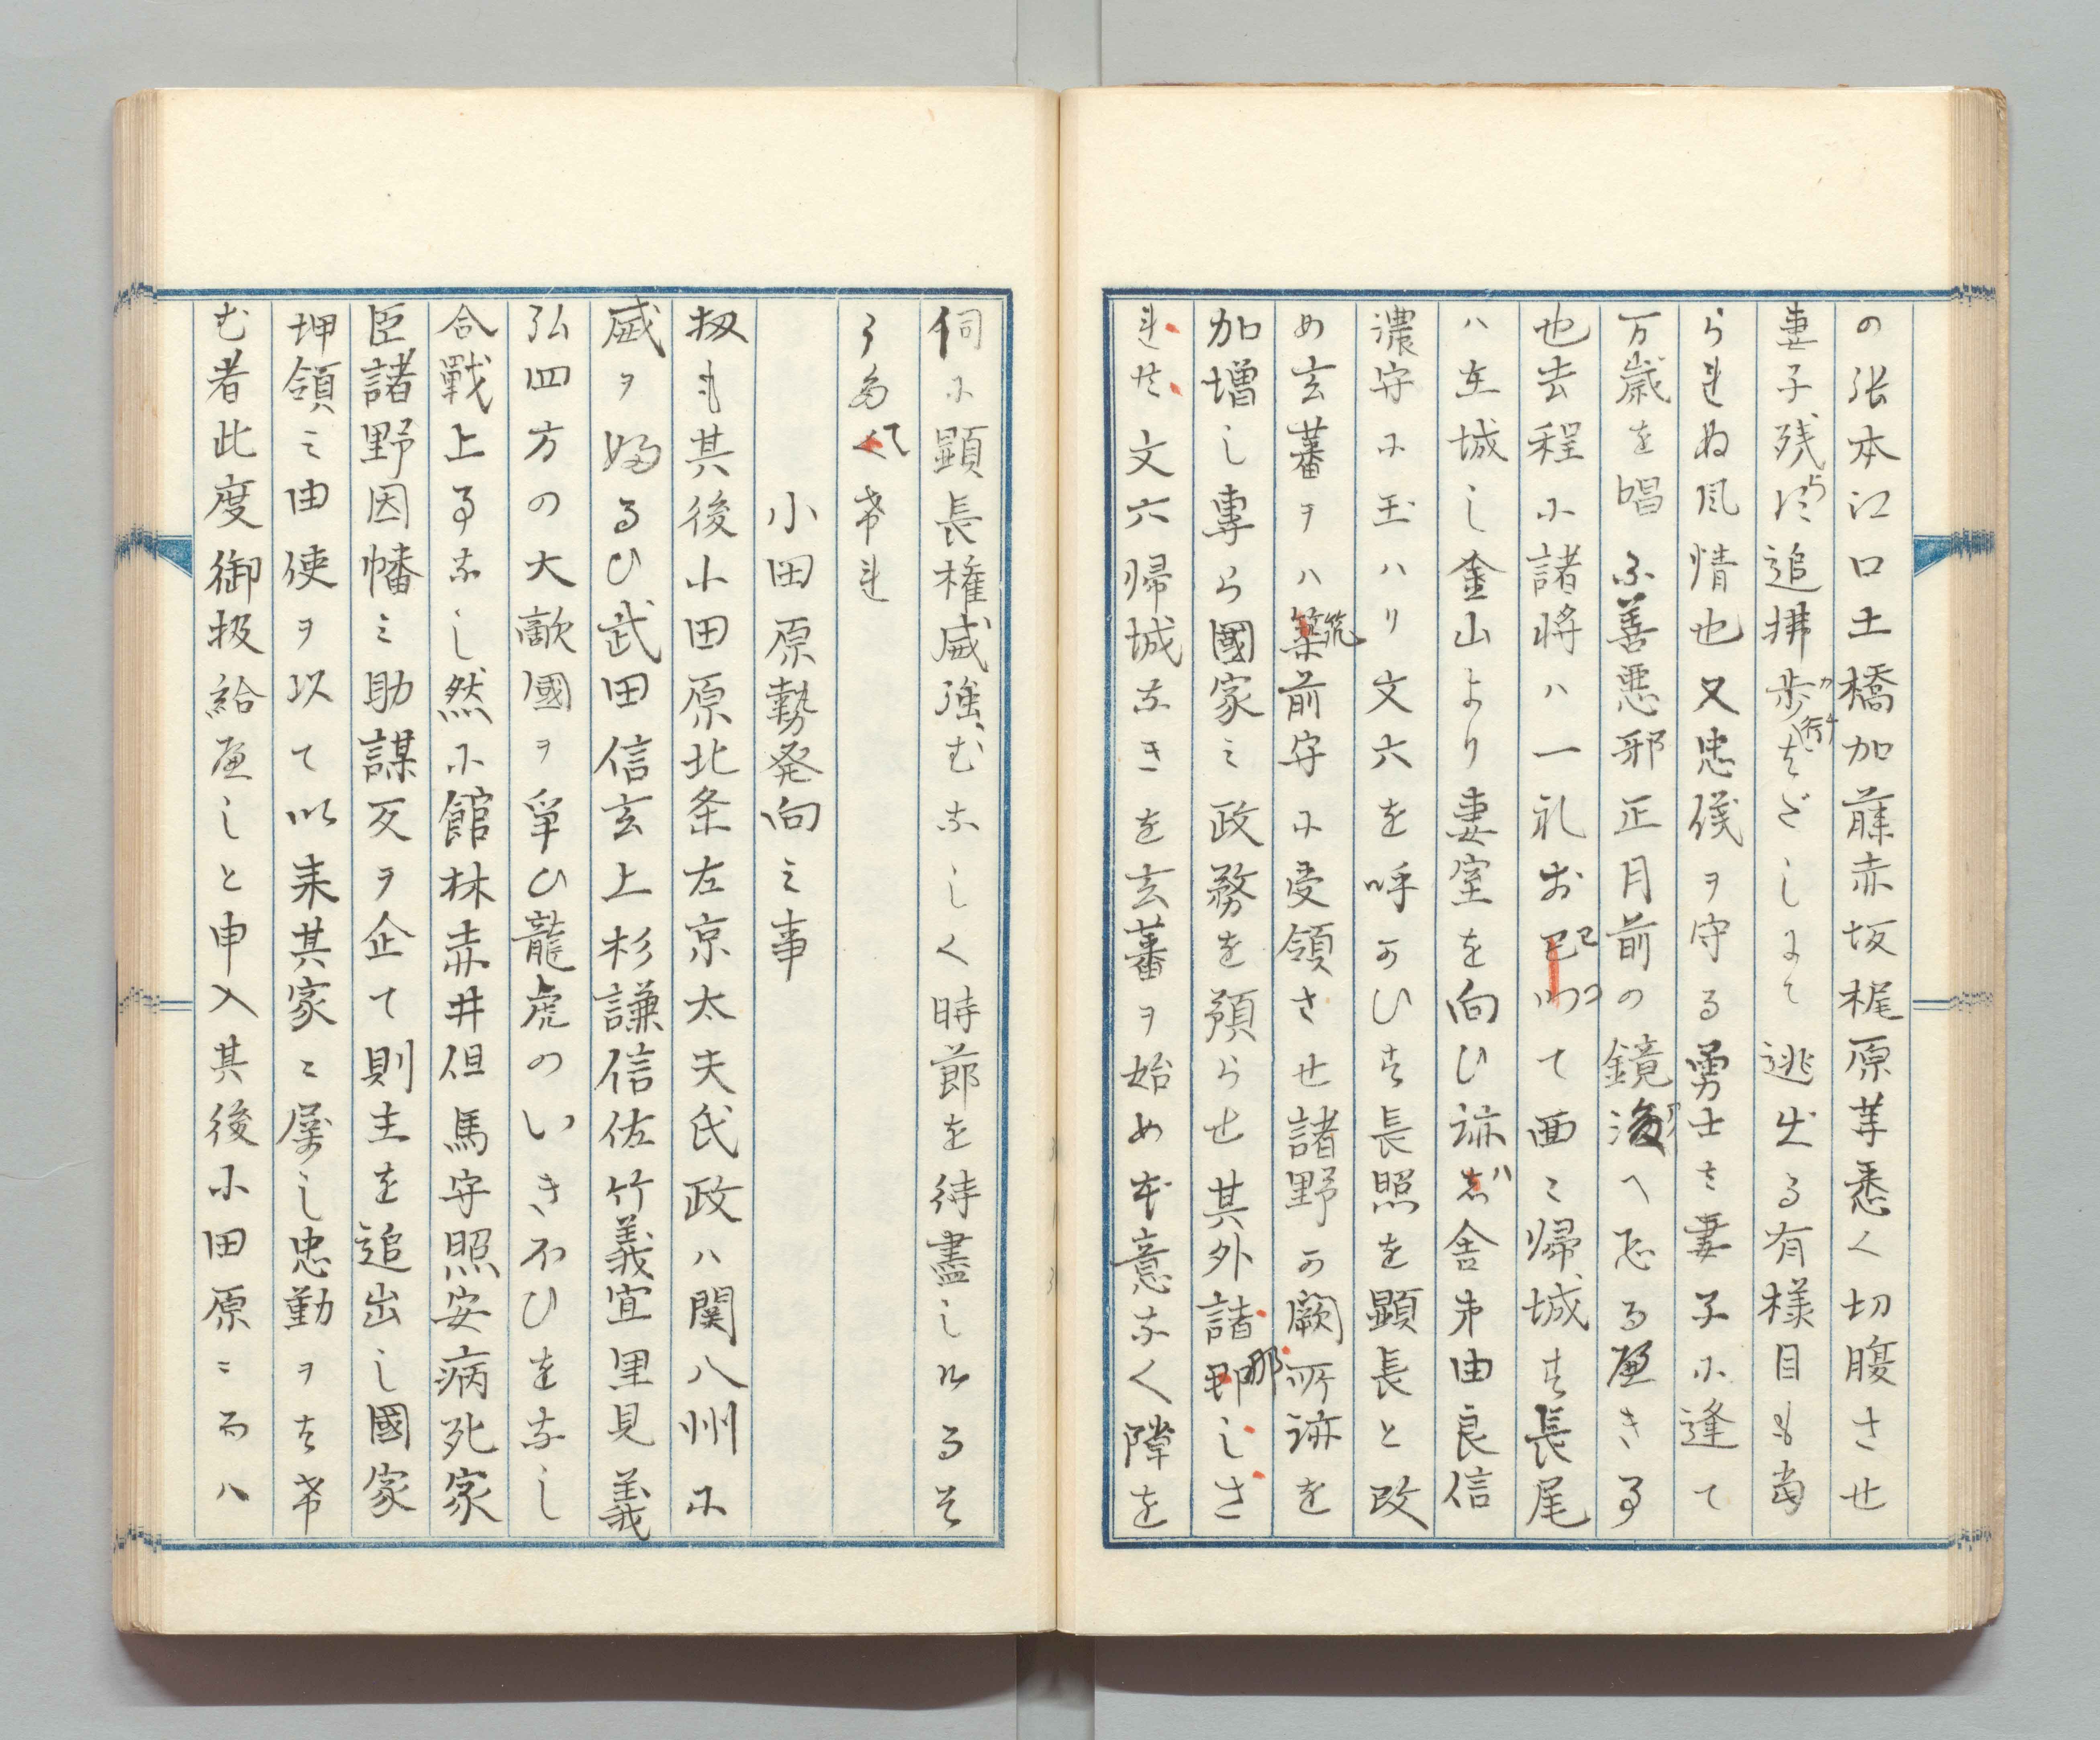 の張本江口土橋加藤赤坂梶原等悉く切腹させ
妻子残らす追拂歩行はだしにて逃出る有様目も當
られぬ風情也又忠儀ヲ守る勇士は妻子に逢て
万歳を唱ふ善悪邪正月前の鏡後へ恐る歴き事
也去程に諸将ハ一礼お已つて面々帰城す長尾
ハ在城し金山より妻室を向ひ跡ハ舎弟由良信
濃守に玉ハり文六を呼かひす長照を顕長と改
め玄蕃ヲハ筑前守に受領させ諸野か闕所跡を
加増し専ら國家之政務を預らせ其外諸郡しさ
れ共文六帰城なきを玄蕃ヲ始め本意なく隙を
伺に顕長権威強むなしく時節を待盡しけるそ
うたてけれ
小田原勢発向之事
扨も其後小田原北条左京太夫氏政ハ関八州に
威ヲ婦るひ武田信玄上杉謙信佐竹義宣里見義
弘四方の大敵國ヲ爭ひ龍虎のいきおひをなし
合戰上る事なし然に館林赤井但馬守照安病死家
臣諸野因幡之助謀反ヲ企て則主を追出し國家
押領之由使ヲ以て以来其家ニ屬し忠勤ヲはけ
む者此度御扱給歴しと申入其後小田原ニおハ